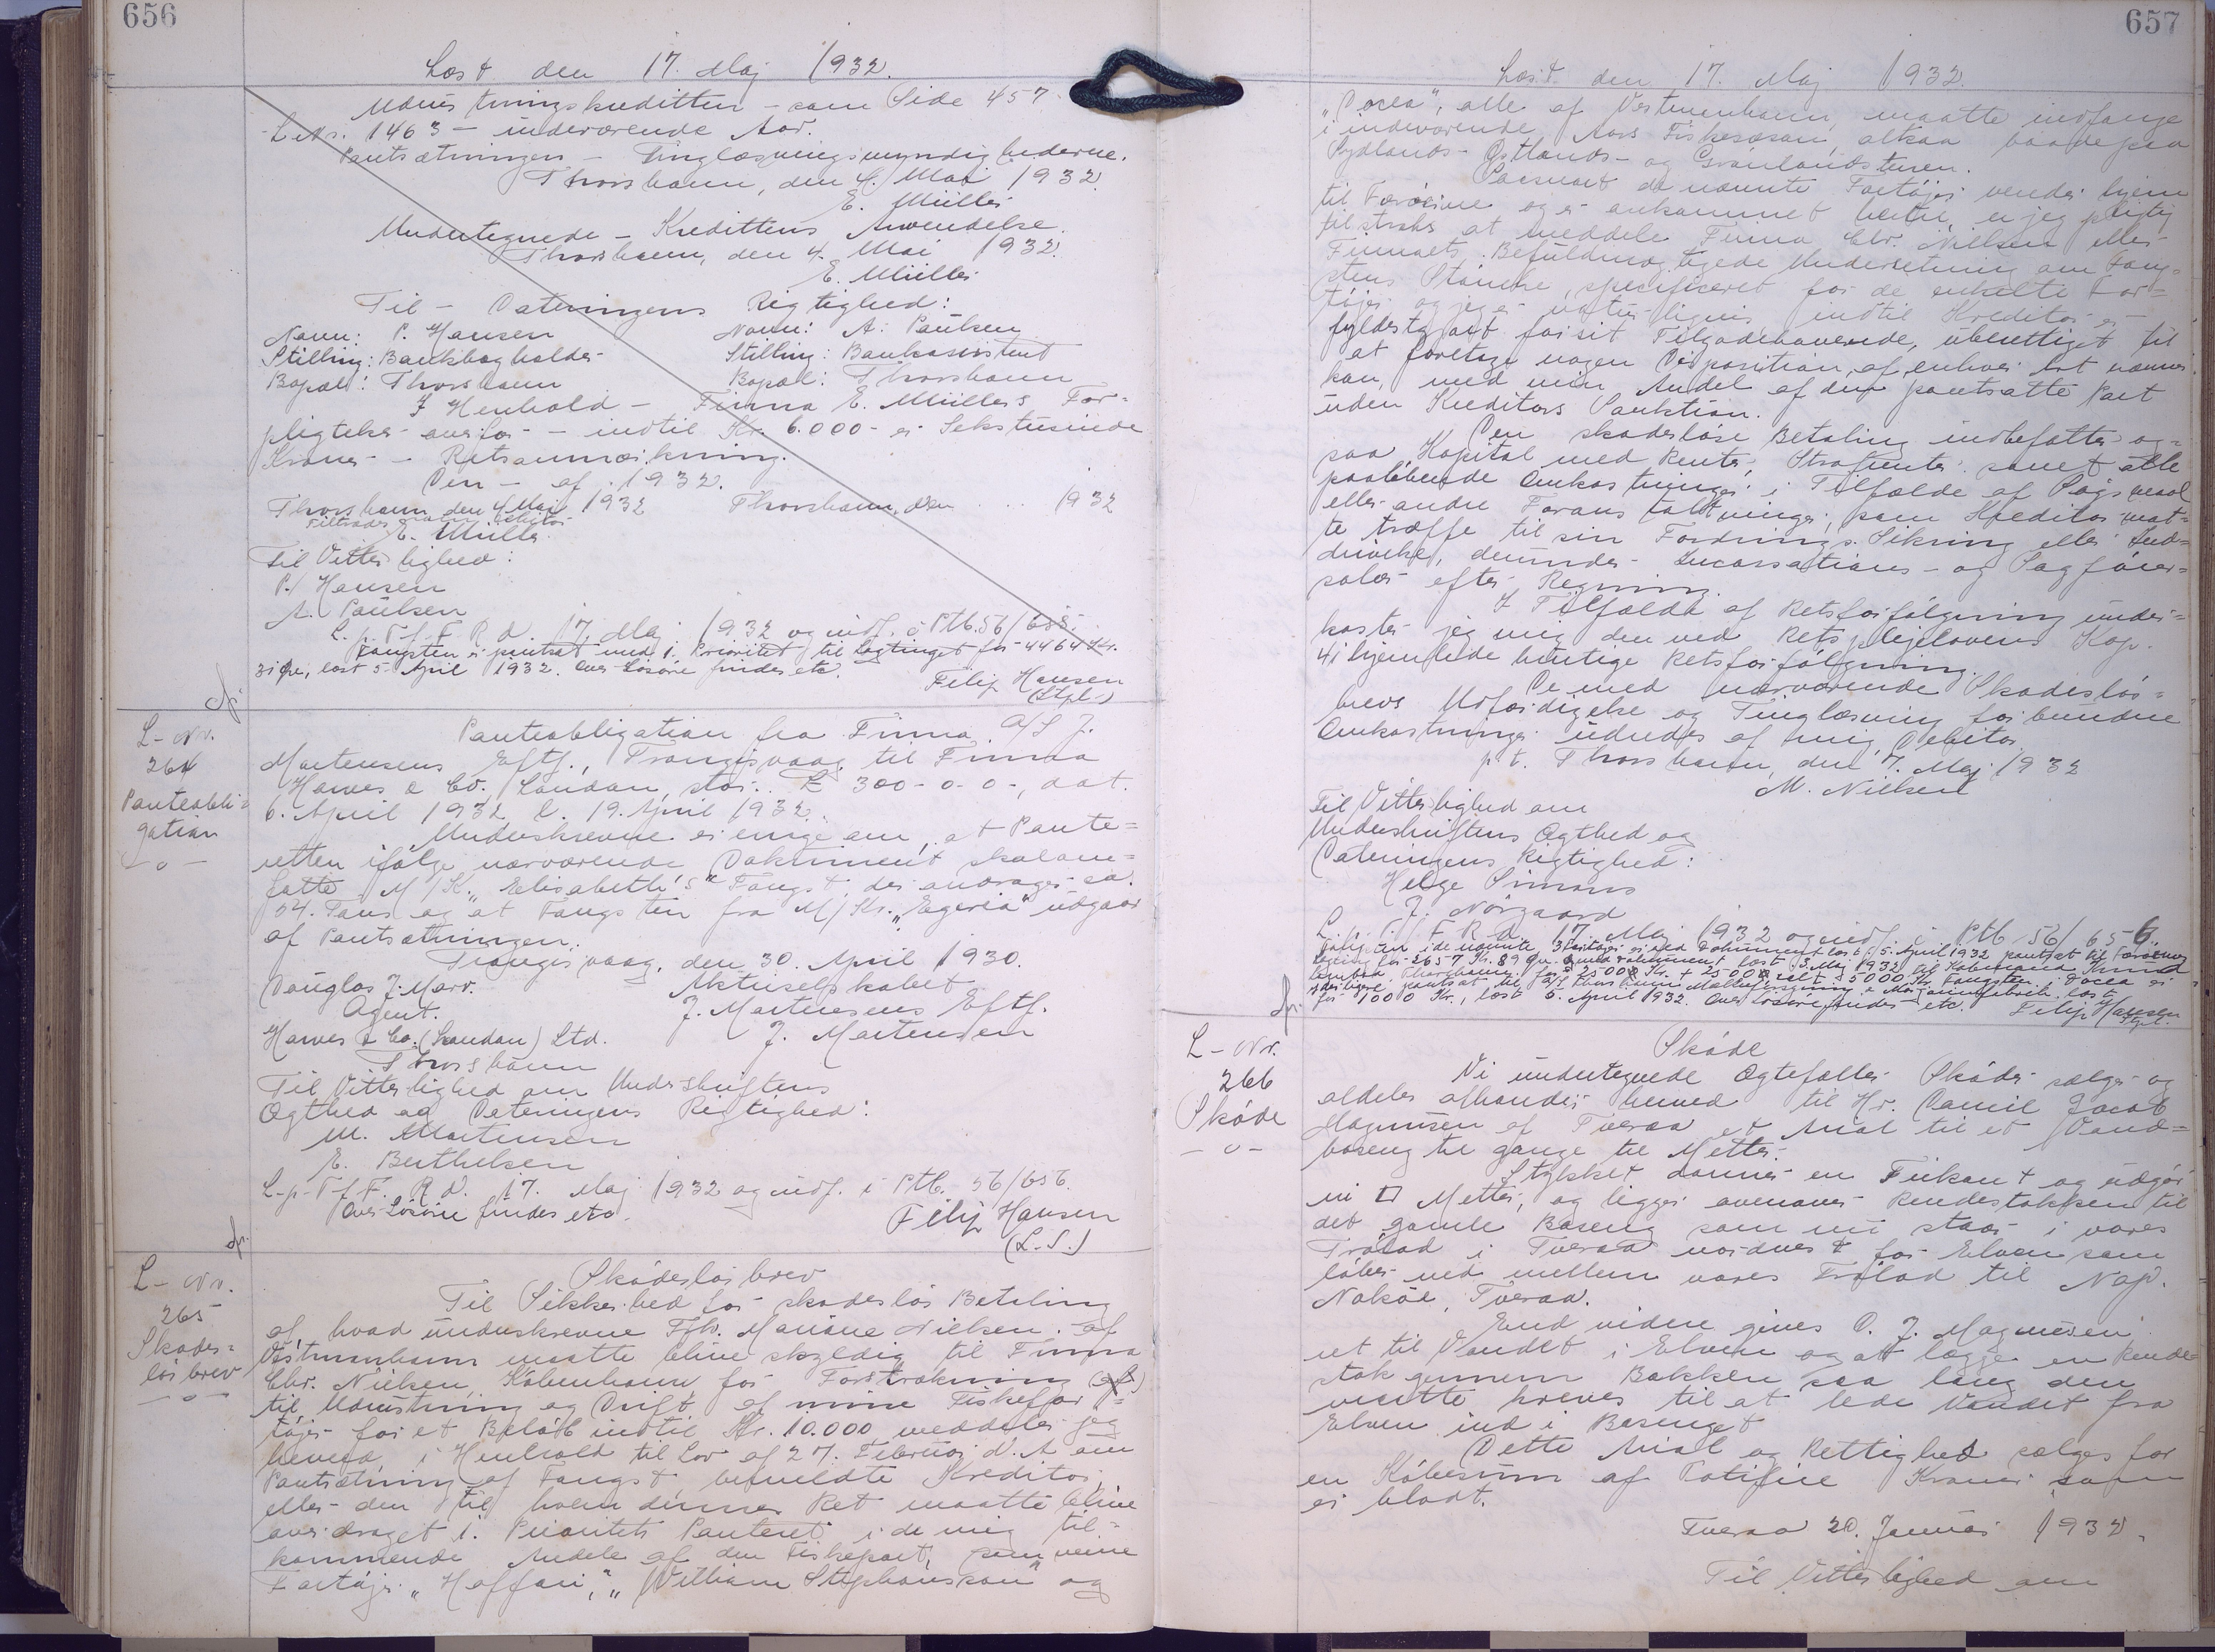 656
Læst den 17. Maj 1932.
Udrustningskreditten - som Side 457
L Nr. 1463 - indeværende Aar.
Pantsætningen - Tinglæsningsmyndighederne.
Thorshavn, den 4. Mai 1932.
E. Müller
Undertegnede - Kredittens Anvendelse.
Thorshavn, den 4. Mai 1932.
E. Müller
Til - Dateringens Rigtighed:
Navn: P. Hansen Navn: A. Paulsen
Stilling: Bankbogholder Stilling: Bankassistent
Bopæl: Thorshavn Bopæl: Thorshavn
I Henhold - Firma E. Müllers For-
pligtelser overfor - indtil Kr. 6.000 - er Sekstusinde
Kroner - Retsanmærkning.
Den - af 1932.
Thorshavn den 4 Maj 1932 Thorshavn, den ... 1932
Tiltrædes som Debitor
E. Müller.
Til Vitterlighed:
P. Hansen
A. Paulsen
L. p. T. f. F. R d. 17. Maj 1932 og indf. i Ptb. 56/655.
Fangsten er pantsat med 1. Prioritet til Lagtinget for 4464 Kr.
31 Øre, læst 5. April 1932. Over Løsøre findes etc.
Filip Hansen
(Stpl.)
L- Nr.
264
Panteobli=
gation
- o -
Panteobligation fra Firma A/S J.
Mortensens Eftf., Trangisvaag til Firma
Hawes & Co. London, stor. £ 300-0-0-, dat.
6. April 1932, l. 19. April 1932.
Underskrevne er enige om, at Pante=
retten ifølge nærværende Dokument skal om=
fatte M/K. "Elisabeth's" Fangst, der andrager ca.
54. Tons og at Fangsten fra M/Sk. "Egeria" udgaar
af Pantsætningen.
Trangisvaag, den 30. April 1930.
Douglas J. Marr. Aktieselskabet
Agent. J. Mortensens Eftf.
Hawes & Co. (London) Ltd. J. Mortensen
Thorshavn
Til Vitterlighed om Underskriftens
Ægthed og Dateringens Rigtighed:
M. Mortensen
E. Berthelsen
L. p. T f F. R d. 17. Maj 1932 og indf. i Ptb. 56/656.
Over Løsøre findes etc.
Filip Hansen
(L.S.)
L- Nr.
265
Skades=
løsbrev
- o -
Skadesløsbrev
Til Sikkerhed for skadesløs Betaling
af, hvad underskrevne Fhv. Mariane Nielsen af
Vestmanhavn maatte blive skyldig til Firma
Chr. Nielsen, København for Forstrækning
til Udrustning og Drift af mine Fiskefar=
tøjer for et Beløb indtil Kr. 10.000, meddeler jeg
herved, i Henhold til Lov af 27. Februar d. A om
Pantsætning af Fangst bemeldte Kreditor,
eller den til hvem dennes Ret maatte blive
overdraget 1. Prioritets Panteret i de mig til=
kommende Andele af den Fiskepart, som mine
Fartøjer "Haffari," "William Stephenson" og
657
Læst den 17. Maj 1932.
"Docea", alle af Vestmanhavn, maatte indfange
i indeværende Aars Fiskesæson, altsaa baade paa
Sydlands- Østlands- og Grønlandsturen.
Saasnart de nævnte Fartøjer vender hjem
til Færøerne og er ankommet hertil, er jeg pligtig
til straks at meddele Firma Chr. Nielsen eller
Firmaets Befuldmægtigede Underretning om Fang=
stens Størrelse, specificeret for de enkelte Far=
tøjer og jeg er naturligvis indtil Kreditor er
fyldestgjort for sit Tilgodehavende, uberettiget til
at foretage nogen Disposition, af enhver Art nævnes
kan, med min Andel af den pantsatte Part
uden Kreditors Sanktion.
Den skadesløse Betaling indbefatter og=
saa Kapital med Renter, Strafrenter samt alle
paaløbende Omkostninger i Tilfælde af Søgsmaal
eller andre Foranstaltninger, som Kreditor maat=
te træffe til sin Fordrings Sikring eller Ind=
drivelse, derunder Incassations- og Sagfører=
salær efter Regning.
I Tilfælde af Retsforfølgning under=
kaster jeg mig den ved Retsplejelovens Kap.
41 hjemlede hurtige Retsforfølgning.
De med nærværende Skadesløs=
brevs Udfærdigelse og Tinglæsning forbundne
Omkostninger udredes af mig, Debitor
p.t. Thorshavn, den 7. Maj 1932
M. Nielsen
Til Vitterlighed om
Underskriftens Ægthed og
Dateringens Rigtighed:
Helge Simons
J. Nørgaard
L. p. T. f F R d. 17. Maj 1932 og indf. i Ptb 56/656
for 1000 Kr., læst 5. April 1932. Over Løsøre findes etc. Filip Hansen
Stpl.
L- Nr.
266
Skøde
- o -
Skøde
Vi undertegnede Ægtefæller Skøder sælger og
aldeles afhænder herved til Hr. Daniel Jacob
Magnusen af Tveraa et Areal til et Vand=
baseng tre gange tre Metter.
Stykket danner en Firkant og udgør
ni □ Metter, og ligger ovenover Rendestokken til
det gamle Baseng som nu staar i vores
Trølad i Tveraa nordvest for Elven som
løber ned mellem vores Trølad til Nap.
Nakøe, Tveraa.
End videre gives D. J. Magnusen
ret til Vandet i Elven og at lægge en Rende=
stok gennem Bakken saa lang den
maatte kræves til at lede Vandet fra
Elven ind i Basenget
Dette Areal og Rettighed sælges for
en Købesum af Totifire Kroner som
er blodt.
Tveraa 20. Januar 1932.
Til Vitterlighed om